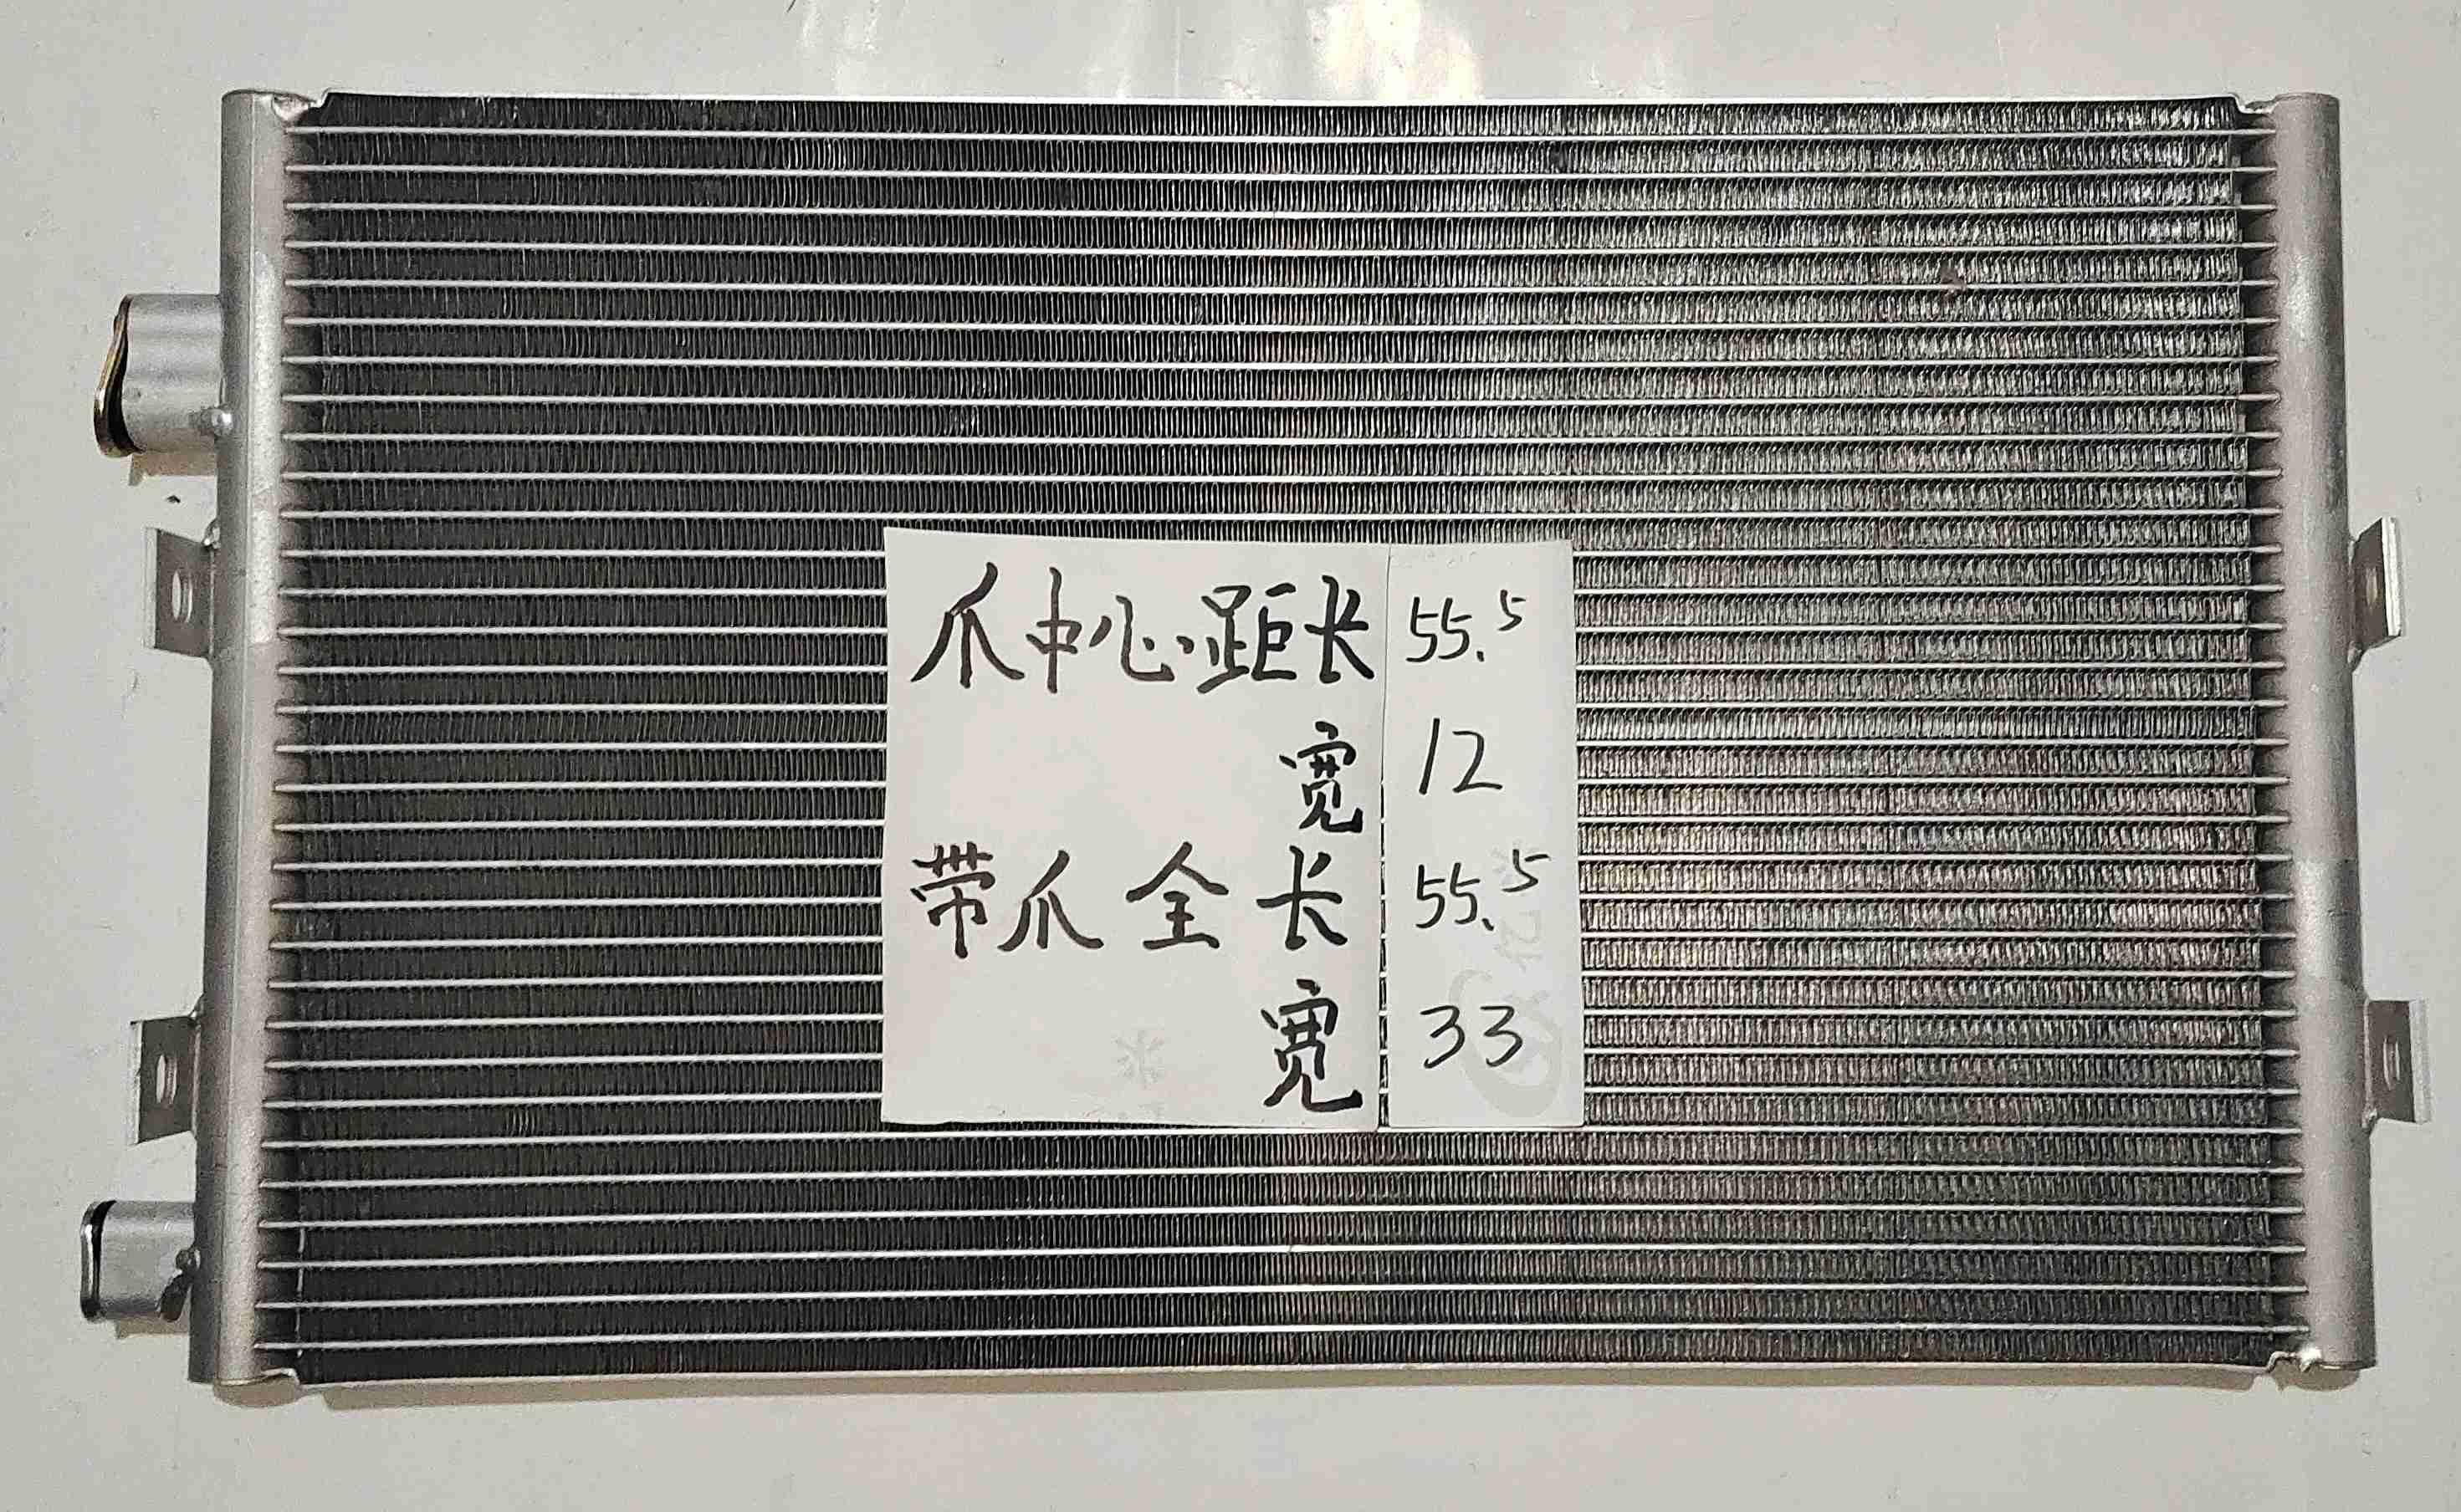 爪中心距长 55.5
宽 12
带爪全长 55.5
宽 33